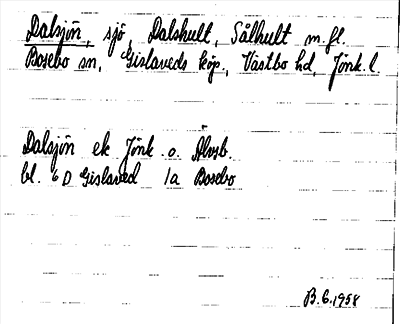 Dalsjön, sjö, Dalshult, Sålhult m.fl.
Bosebo sn, Gislaveds köp., Västbo hd, Jönk. l.
Dalsjön ek Jönk. o. Älvsb.
bl. 6D Gislaved 1a Bosebo
B.G. 1958